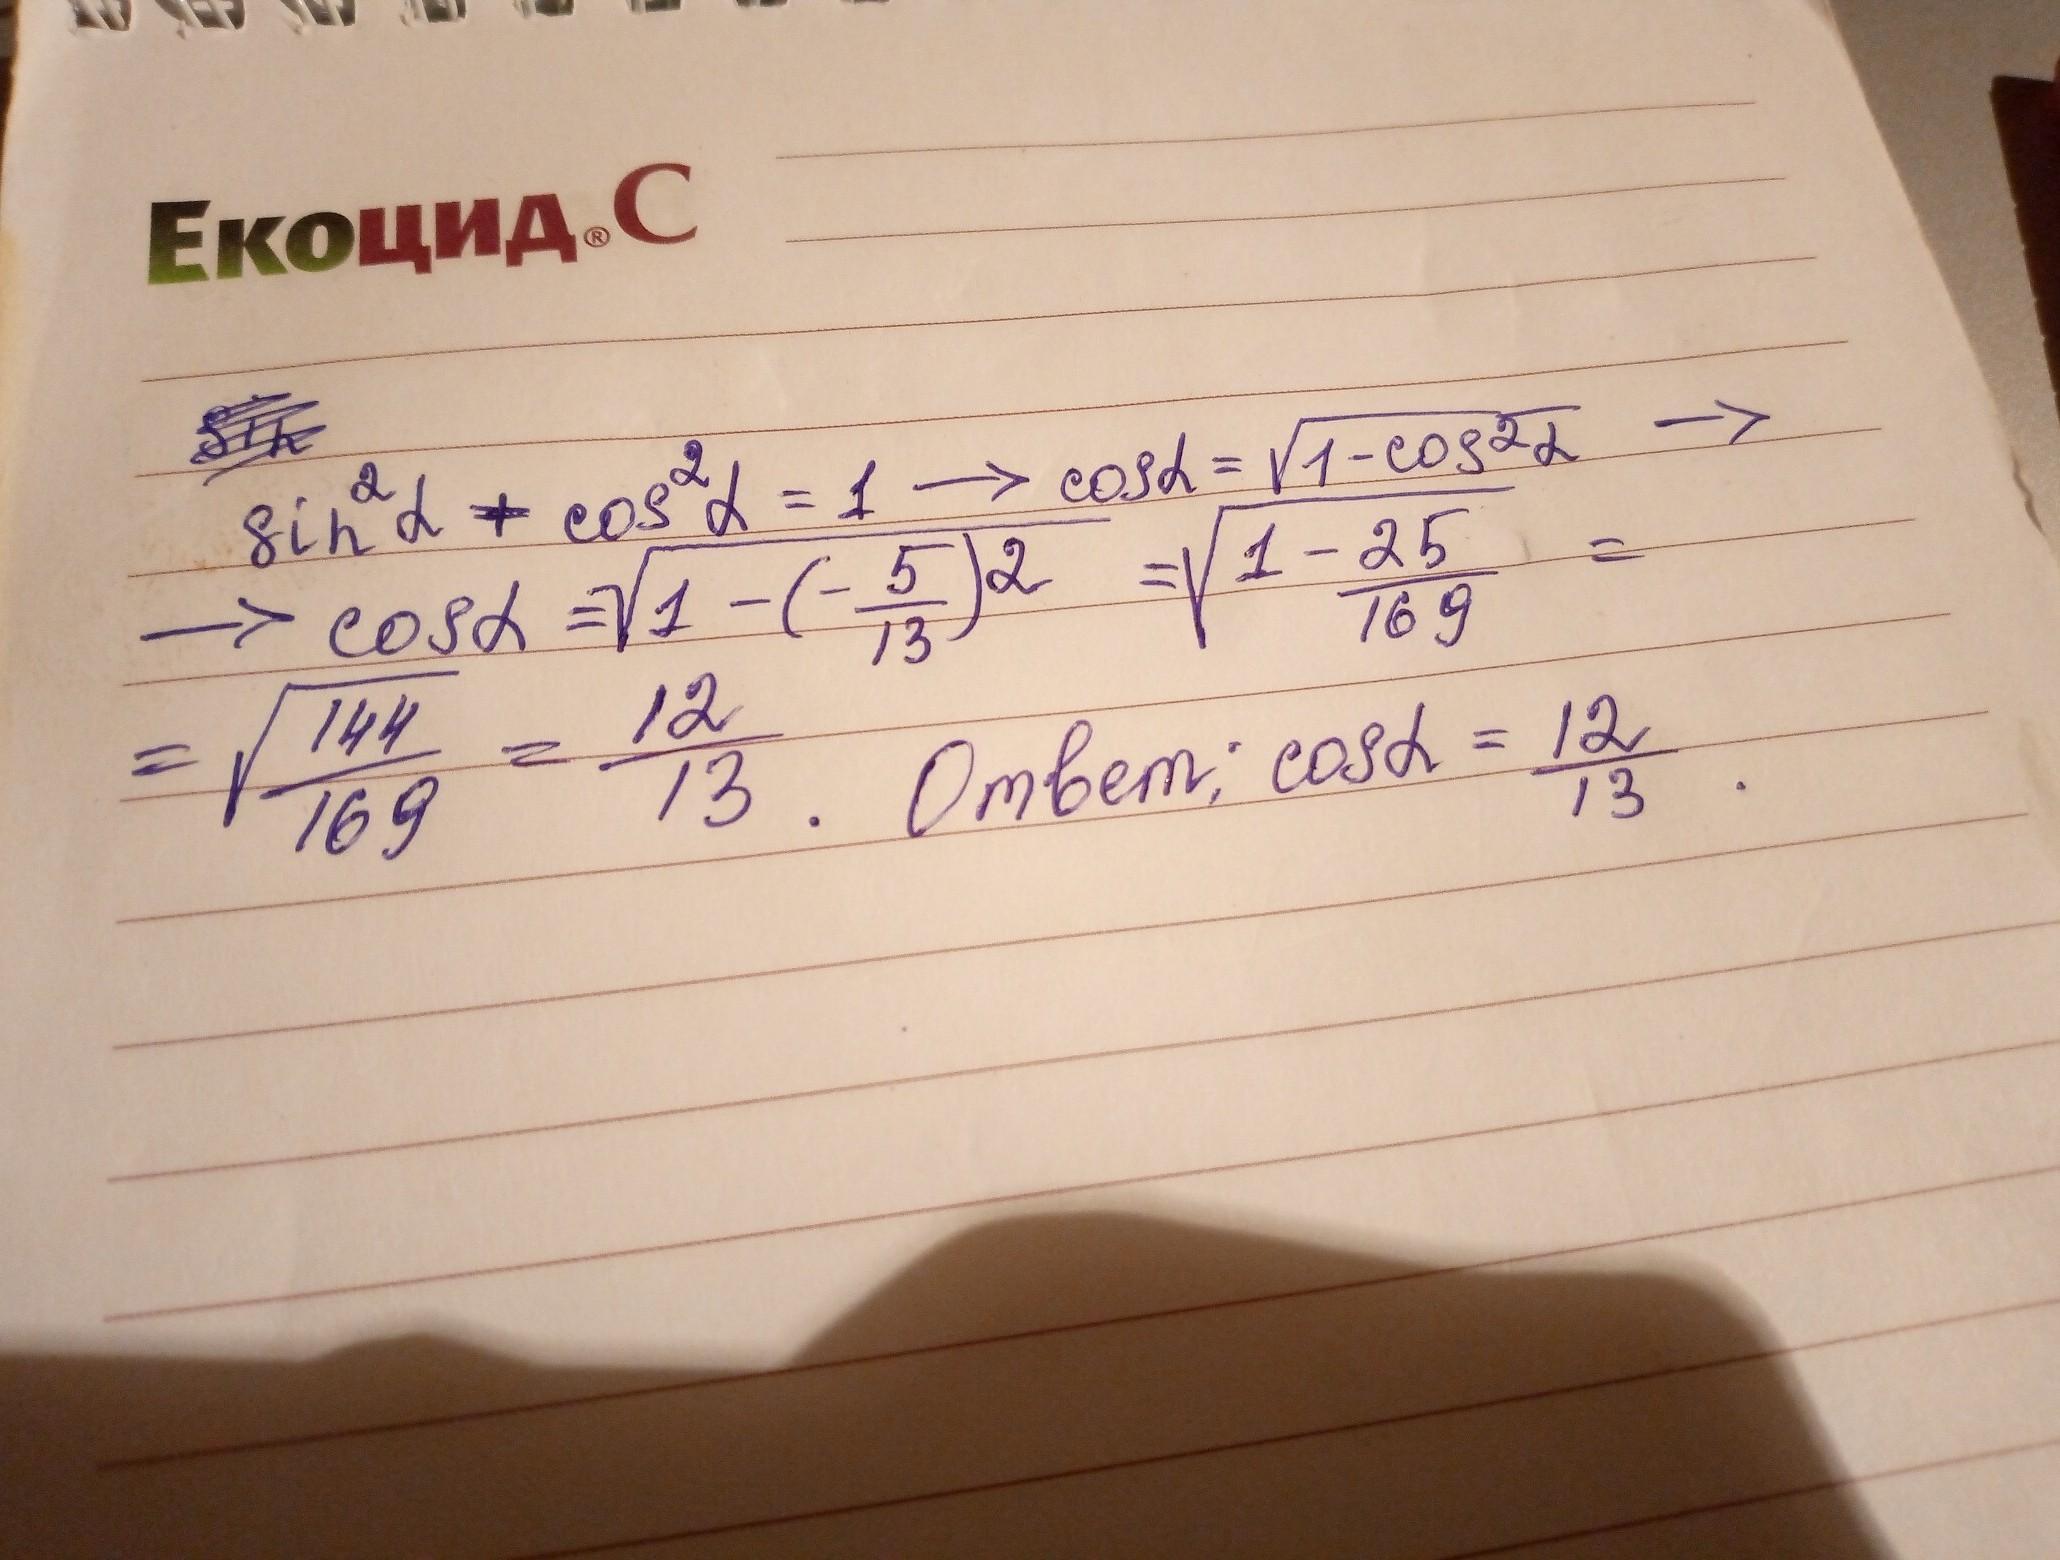 Екоцид® С
sin
sin²α + cos²α = 1 → cosα = √1-cos²α →
→ cosα = √1 - (-5/13)² = √1 - 25/169 =
= √144/169 = 12/13 . Ответ: cosα = 12/13 .